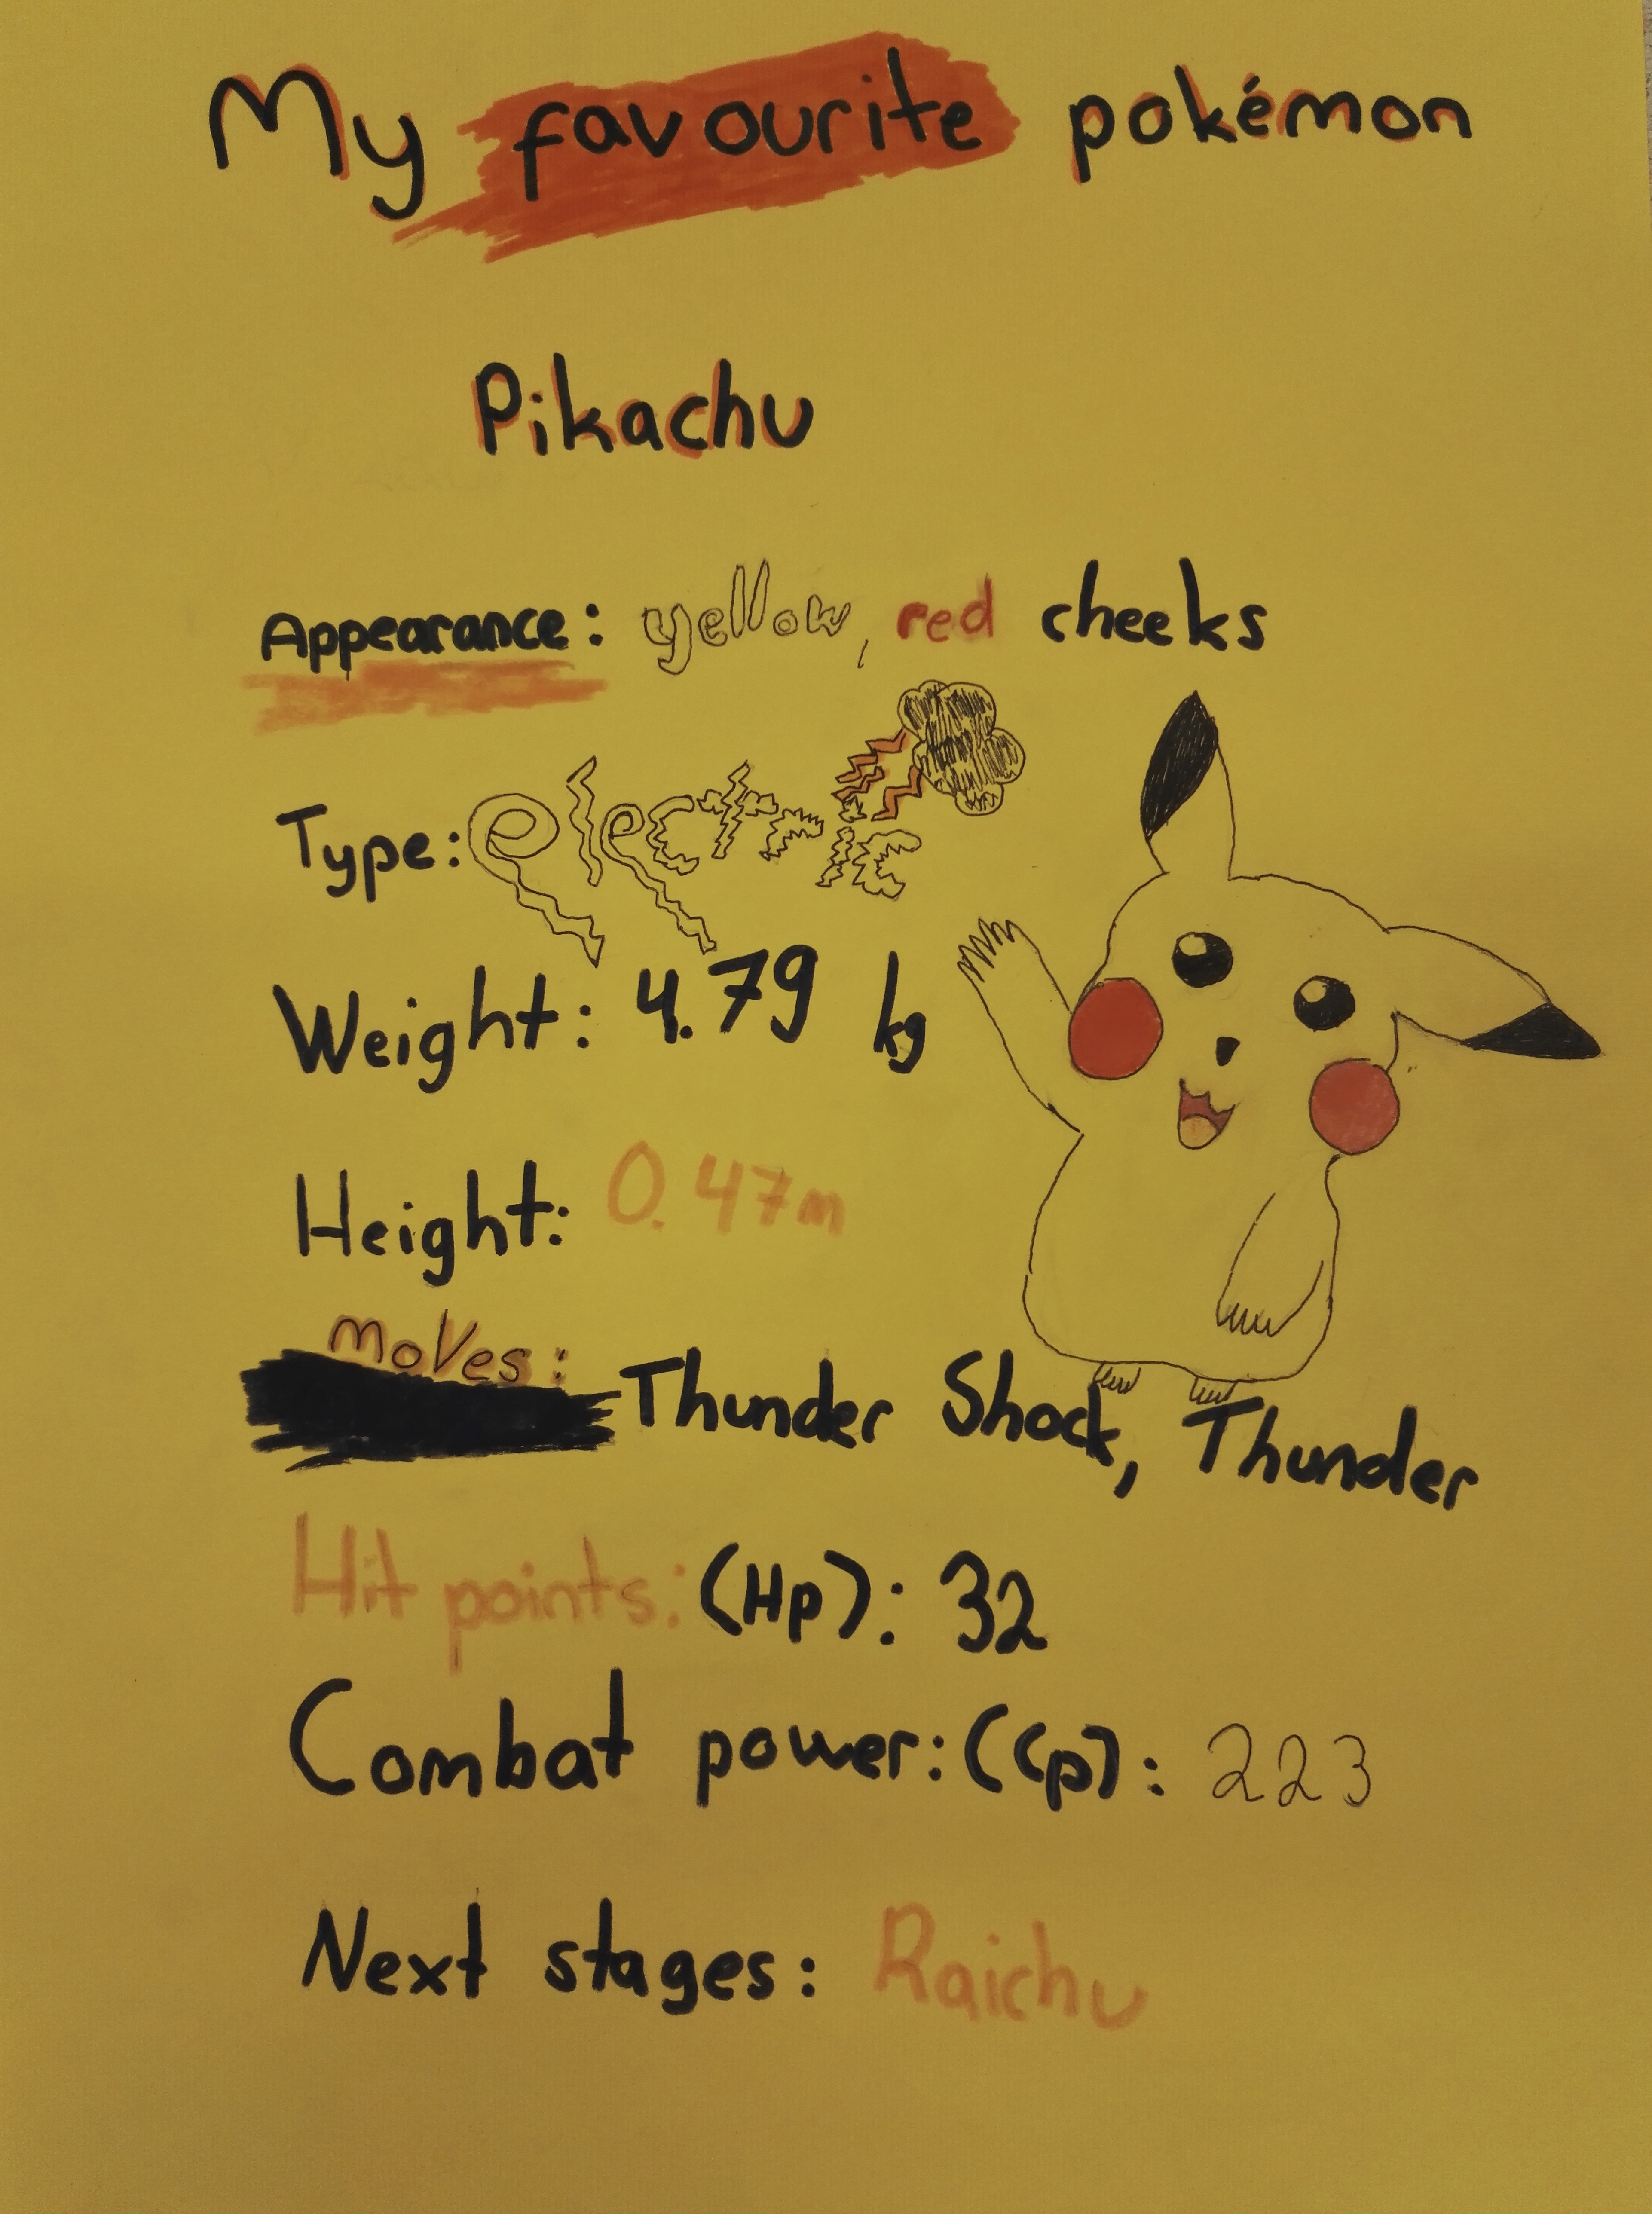 My favourite pokémon
Pikachu
Appearance: yellow, red cheeks
Type: electric
Weight: 4.79 kg
Height: 0.47m
moves: Thunder Shock, Thunder
Hit points: (Hp): 32
Combat power: (Cp): 223
Next stages: Raichu